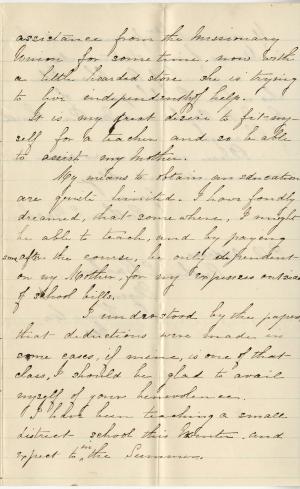 assistance from the Missionary
Union for some time, now with
a little hoarded store she is trying
to live independent of help.
It is my great desire to fit my-
self for a teacher and so be able
to assist my Mother.
My means to obtain an education
are quite limited. I have fondly
dreamed, that somewhere, I might
be able to teach, and by paying
some after the course, be only dependent
on my Mother for my expenses outside
of school bills.
I understood by the papers
that deductions were made in
some cases, if mine, is one of that
class, I should be glad to avail
myself of your benevolence.
I have been teaching a small
district school this Winter, and
expect to in the Summer.